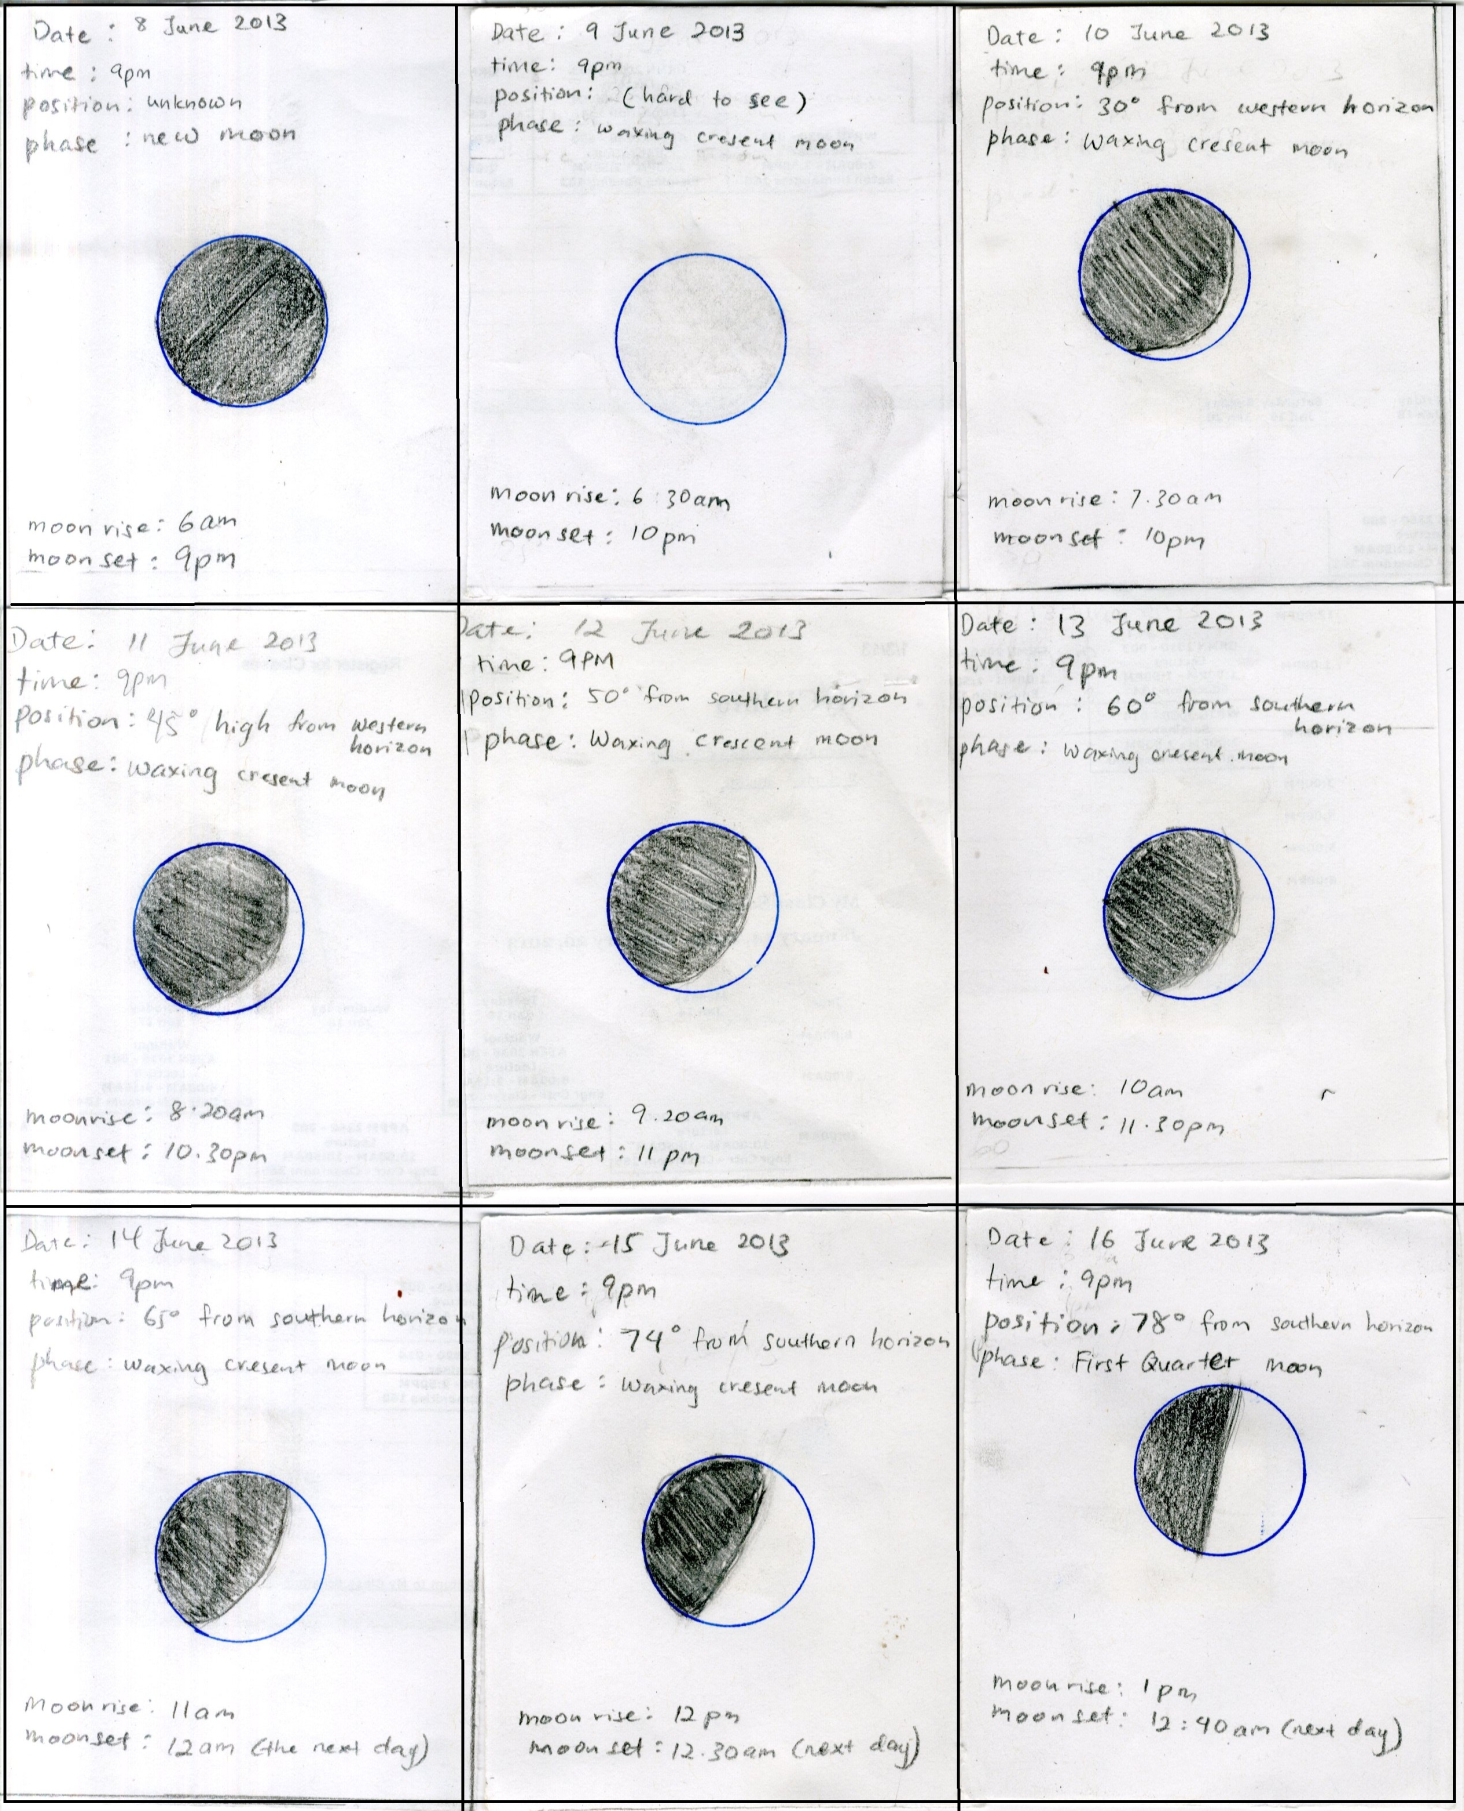 Date : 8 June 2013
time : 9pm
position: unknown
phase : new moon
moon rise: 6am
moon set : 9pm
Date : 9 June 2013
time: 9pm
position: (hard to see)
phase : waxing cresent moon
moon rise: 6:30am
moon set : 10pm
Date : 10 June 2013
time : 9pm
position: 30° from western horizon
phase: waxing cresent moon
moon rise: 7.30am
moon set : 10pm
Date: 11 June 2013
time: 9pm
position: 45° high from western
horizon
phase: waxing cresent moon
moonrise: 8.20am
moonset : 10.30pm
Date: 12 June 2013
time: 9PM
position: 50° from southern horizon
phase: Waxing crescent moon
moon rise: 9.20am
moonset : 11pm
Date : 13 June 2013
time: 9pm
position : 60° from southern
horizon
phase : waxing cresent moon
moon rise: 10am
moonset : 11.30pm
Date: 14 June 2013
time: 9pm
position: 65° from southern horizon
phase: waxing cresent moon
Moon rise: 11am
moonset : 12am (the next day)
Date : 15 June 2013
time : 9pm
position: 74° from southern horizon
phase : waxing cresent moon
moon rise: 12pm
moon set : 12.30am (next day)
Date : 16 June 2013
time : 9pm
position : 78° from southern horizon
phase: First Quarter moon
moon rise: 1pm
moon set: 12:40am (next day)